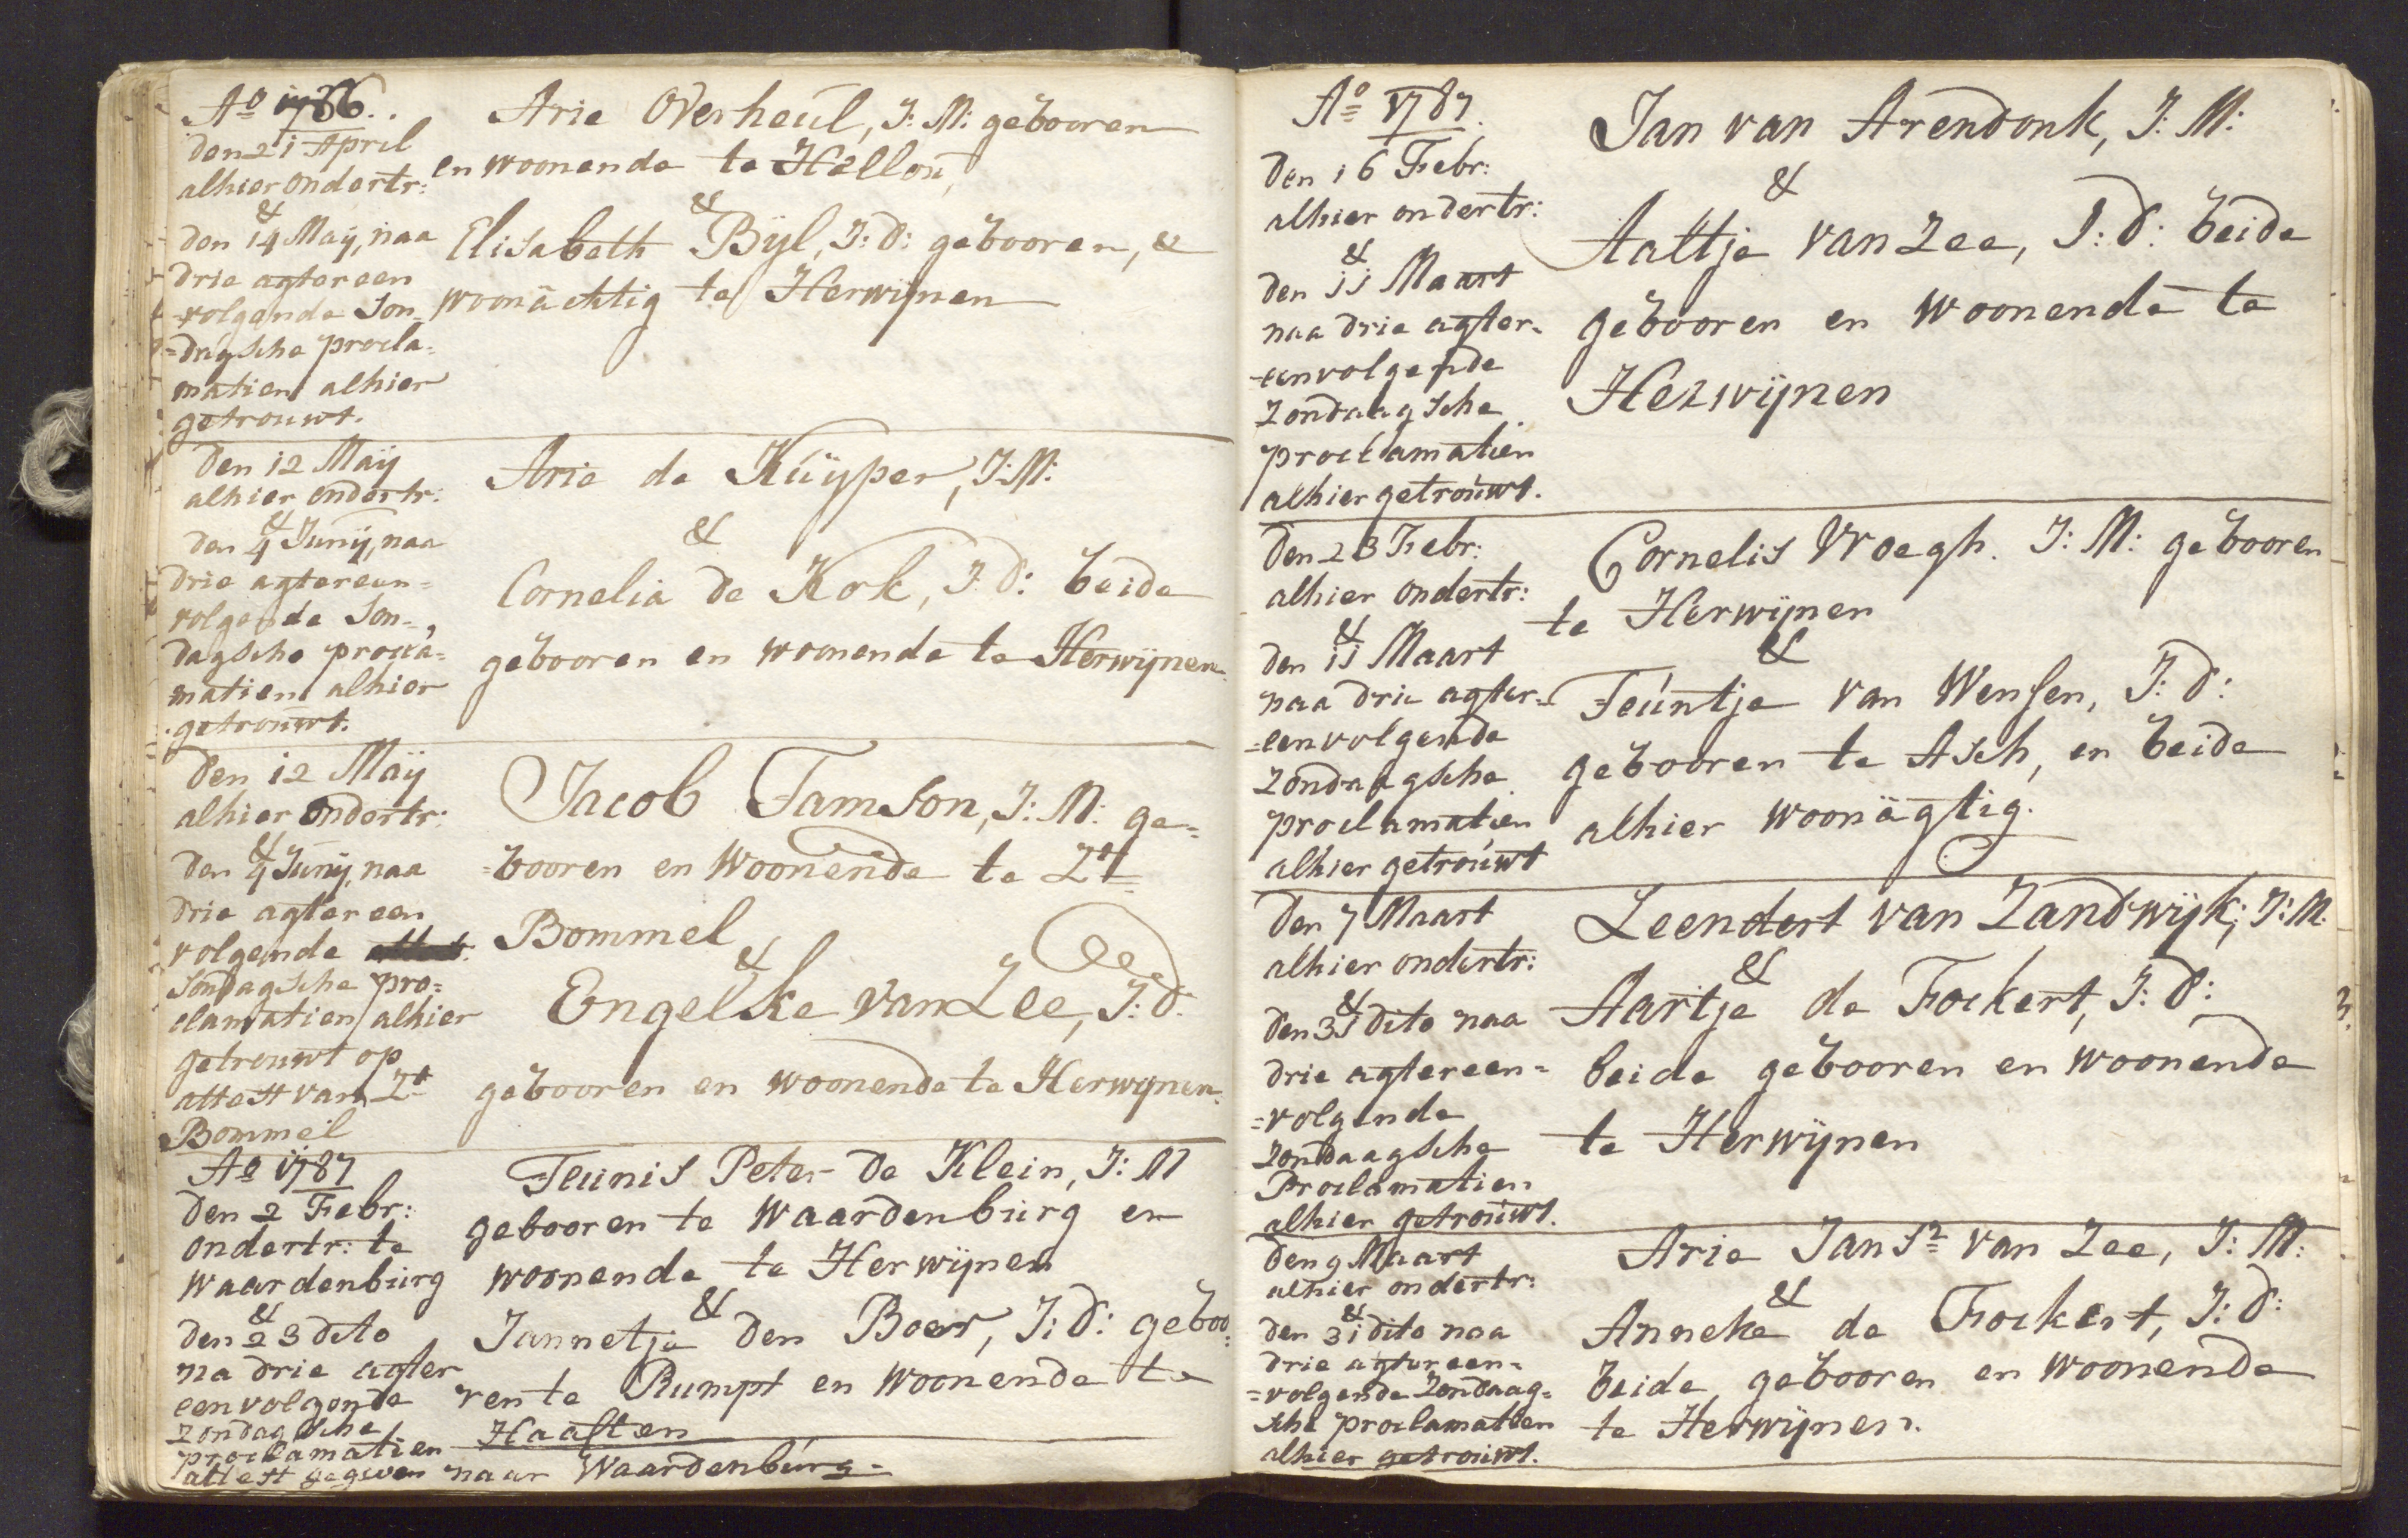 Ao 1786..
den 21 April
alhier ondertr:
&
den 14 Maÿ, naa
drie agtereen
-volgende Son-
=dagsche procla=
matien alhier
getrouwt.
Arie Overheul, J: M: gebooren
en woonende te Hellou,
&
Elisabeth Bÿl, J: d: gebooren, &
woonächtig te Herwijnen
den 12 Maÿ
alhier ondertr:
&
den 4 Junÿ, naa
drie agtereen=
volgende Son-
dagsche procla=
matien alhier
getrouwt.
Arie de Kuÿper, J: M:
&
Cornelia de Kok, J: d: beide
gebooren en woonende te Herwijnen.
den 12 Maÿ
alhier ondertr:
&
den 4 Junÿ, naa
drie agtereen
volgende
Sondagsche pro=
clamatien alhier
getrouwt op
attest van Zt
Bommel
Jacob Tamson, J: M: ge=
=booren en Woonende te Zt
Bommel
&
Engelke van Zee, J: d:
gebooren en woonende te Herwijnen.
Ao 1787
den 2 Febr:
ondertr: te
Waardenburg
&
den 23 dito
na drie agter
eenvolgende
Zondagsche
proclamatien
attest gegeven naar Waardenburg.
Teunis Peter de Klein, J: M
gebooren te Waardenburg en
woonende te Herwijnen
&
Jannetje den Boer, J: d: geboo:
ren te Rumpt en Woonende te
Haaften
Ao 1787.
den 16 Febr:
alhier ondertr:
&
den 11 Maart
naa drie agter=
-eenvolgende
Zondaagsche
proclamatien
alhier getrouwt.
Jan van Arendonk, J: M:
&
Aaltje van Zee, J: d: beide
gebooren en woonende te
Herwijnen
den 23 Febr:
alhier ondertr:
&
den 11 Maart
naa drie agter=
=eenvolgende
Zondaagsche
proclamatien
alhier getrouwt
Cornelis Vroegh. J: M: gebooren
te Herwijnen
&
Teuntje van Wensen, J: d:
gebooren te Asch, en beide
alhier woonägtig.
den 7 Maart
alhier ondertr:
&
den 31 dito naa
drie agtereen=
=volgende
Zondaagsche
Proclamatien
alhier getrouwt.
Leendert van Zandwijk, J: M.
&
Aartje de Fockert, J: d:
beide gebooren en woonende
te Herwijnen
den 9 Maart
alhier ondertr:
&
den 31 dito naa
drie agtereen=
=volgende Zondaag=
sche proclamatien
alhier getrouwt.
Arie Jansz van Zee, J: M:
&
Anneke de Fockert, J: d:
beide gebooren en woonende
te Herwijnen.